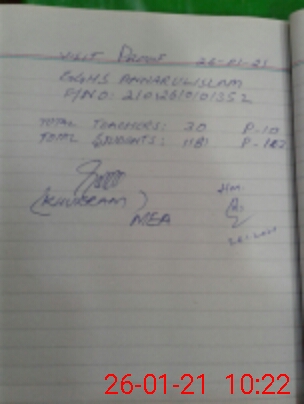 VISIT PROOF 26-01-21
GGHS ANWARULISLAM
P/NO: 21026/0/0/352
TOTAL TEACHERS: 30 P-10
TOTAL STUDENTS: 1181 P-182
(KHURRAM)
MEA
HM
26-01-21 10:22